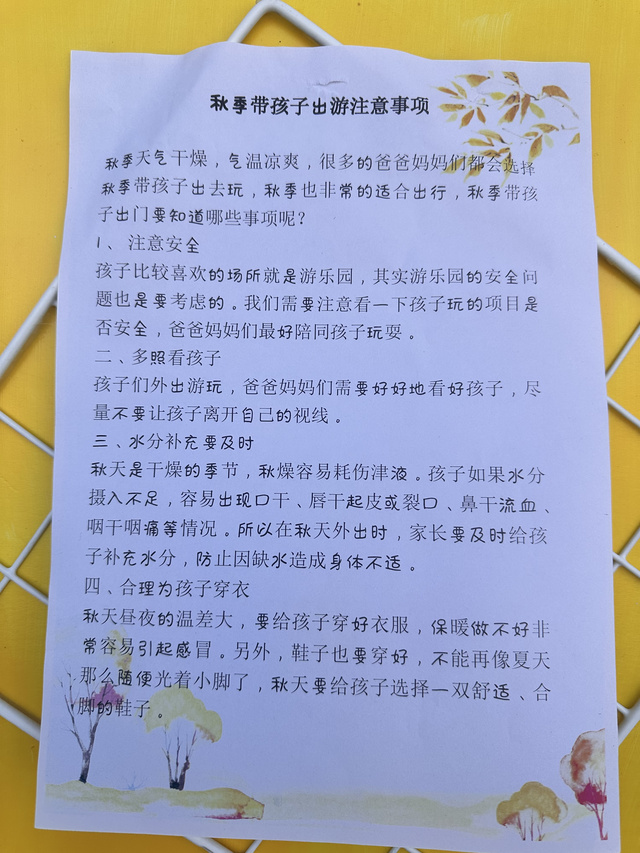 秋季带孩子出游注意事项
秋季天气干燥，气温凉爽，很多的爸爸妈妈们都会选择
秋季带孩子出去玩，秋季也非常的适合出行，秋季带孩
子出门要知道哪些事项呢？
1、 注意安全
孩子比较喜欢的场所就是游乐园，其实游乐园的安全问
题也是要考虑的。我们需要注意看一下孩子玩的项目是
否安全，爸爸妈妈们最好陪同孩子玩耍。
二、多照看孩子
孩子们外出游玩，爸爸妈妈们需要好好地看好孩子，尽
量不要让孩子离开自己的视线。
三、水分补充要及时
秋天是干燥的季节，秋燥容易耗伤津液。孩子如果水分
摄入不足，容易出现口干、唇干起皮或裂口、鼻干流血、
咽干咽痛等情况。所以在秋天外出时，家长要及时给孩
子补充水分，防止因缺水造成身体不适。
四、合理为孩子穿衣
秋天昼夜的温差大，要给孩子穿好衣服，保暖做不好非
常容易引起感冒。另外，鞋子也要穿好，不能再像夏天
那么随便光着小脚了，秋天要给孩子选择一双舒适、合
脚的鞋子。